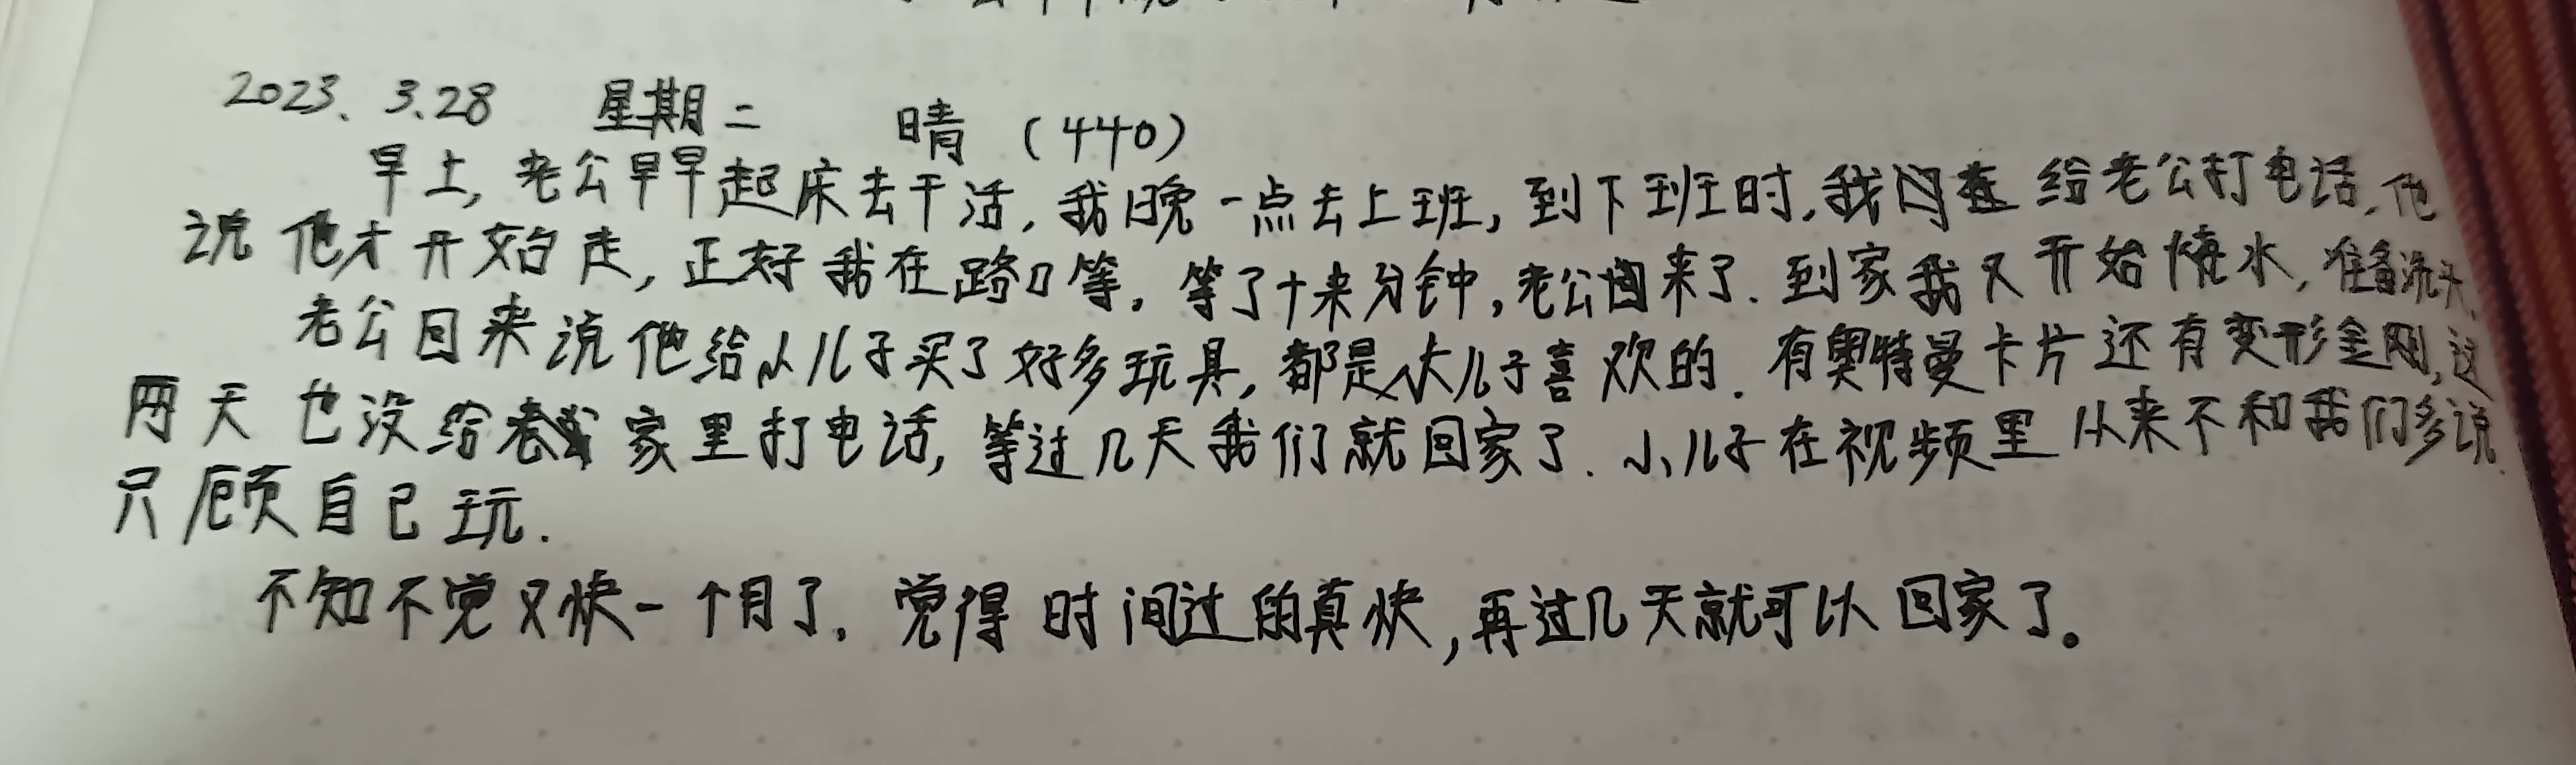 2023、3.28 星期二 晴（440）
早上，老公早早起床去干活，我晚一点去上班，到下班时，我给老公打电话，他
说他才开始走，正好我在路口等，等了十来分钟，老公回来了.到家我又开始烧水，准备洗头，
老公回来说他给儿子买了好多玩具，都是大儿子喜欢的.有奥特曼卡片还有变形金刚，这
两天也没给家里打电话，等过几天我们就回家了.小儿子在视频里从来不和我们多说，
只顾自己玩.
不知不觉又快一个月了，觉得时间过的真快，再过几天就可以回家了。